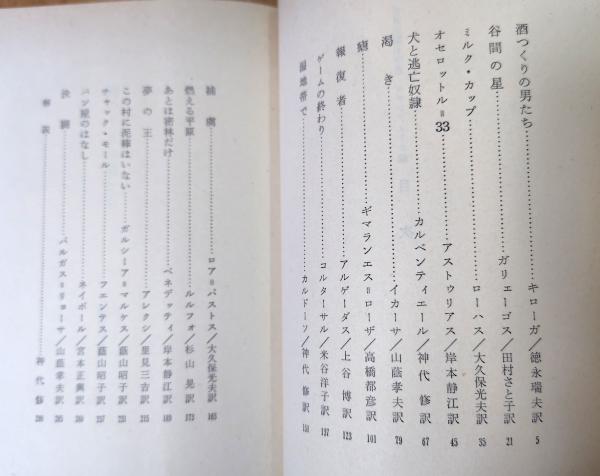 酒つくりの男たち………キローガ/徳永瑞夫訳 5
谷間の星………ガリェーゴス/田村さと子訳 21
ミルク・カップ………ローハス/大久保光夫訳 35
オセロットル=33………アストゥリアス/岸本静江訳 43
犬と逃亡奴隷………カルペンティエール/神代 修訳 67
渇き………イカーサ/山蔭孝夫訳 79
ギマランエス=ローザ/高橋都彦訳 101
報復者………アルゲーダス/上谷 博訳 123
ゲームの終わり………コルターサル/米谷洋子訳 137
湿地帯で………カルドーソ/神代 修訳 151
ロア=バストス/大久保光夫訳 163
燃える平原………ルルフォ/杉山 晃訳 173
あとは密林だけ………ベネデッティ/岸本静江訳
夢の王………アレクシ/里見三吉訳
この村に泥棒はいない………ガルシーア=マルケス/蔭山昭子訳
チャック・モール………フェンテス/蔭山昭子訳
パン屋のはなし………ネイポール/宮本正興訳
決闘………バルガス=リョーサ/山蔭孝夫訳
解説………神代 修